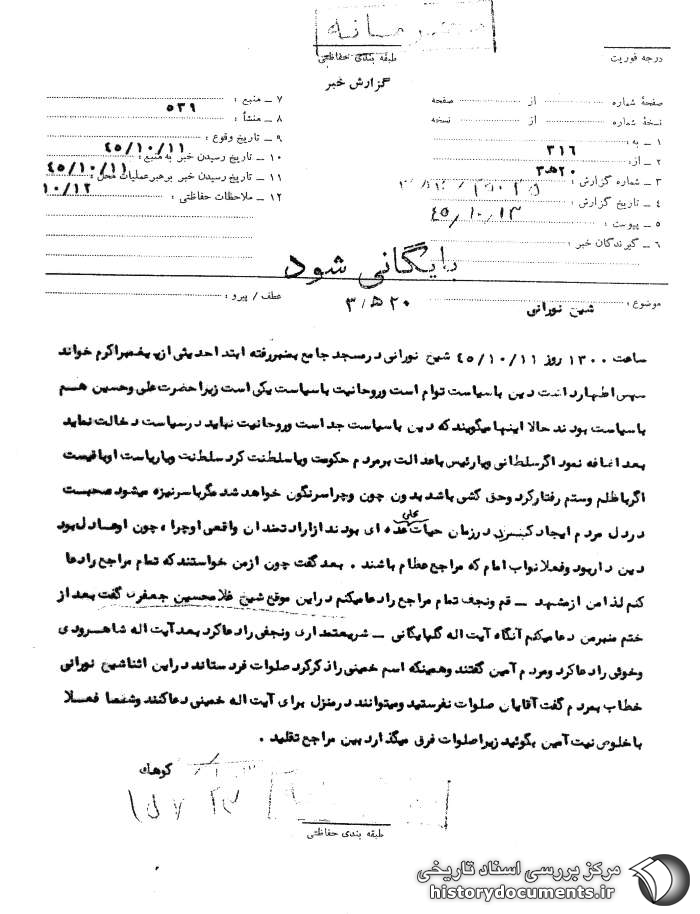 محرمانه
طبقه بندی حفاظتی
درجه فوریت
گزارش خبر
صفحهٔ شماره از صفحه
نسخهٔ شماره از نسخه
۱ ــ به : ۳۱۶
۲ ــ از: ۲۰ ه‍ ۳
۳ ــ شماره گزارش :
۴ ــ تاریخ گزارش : ۴۵/۱۰/۱۳
۵ ــ پیوست :
۶ ــ گیرندگان خبر :
۷ ــ منبع : ۵۳۹
۸ ــ منشأ :
۹ ــ تاریخ وقوع : ۴۵/۱۰/۱۱
۱۰ ــ تاریخ رسیدن خبر به منبع: ۴۵/۱۰/۱۱
۱۱ ــ تاریخ رسیدن خبر برهبرعملیات محل: ۱۰/۱۲
۱۲ ــ ملاحظات حفاظتی :
بایگانی شود
موضوع : شیخ نورانی
عطف / پیرو : ۲۰ ه‍/۳
ساعت ۱۳۰۰ روز ۴۵/۱۰/۱۱ شیخ نورانی درمسجد جامع بمنبررفته ابتدا حدیثی ازپیغمبراکرم خواند
سپس اظهارداشت دین با سیاست توام است وروحانیت باسیاست یکی است زیرا حضرت علی وحسین هم
با سیاست بودند حالا اینها میگویند که دین با سیاست جد است وروحانیت نباید درسیاست دخالت نماید
بعد اضافه نمود اگرسلطانی ویارئیس باعدالت برمردم حکومت ویاسلطنت کرد سلطنت ویاریاست اوباقیست
اگرباظلم وستم رفتارکرد وحق کشی باشد بدون چون وچراسرنگون خواهد شد مگرباسرنیزه میشود محبت
دردل مردم ایجاد کرد درزمان حیات علی عده ای بودند ازارادتمندان واقعی اوچرا ، چون اوعادل بود
دین داربود وفعلا نواب امام که مراجع عظام باشند . بعد گفت چون ازمن خواستند که تمام مراجع رادعا
کنم لذا من ازمشهد ــ قم ونجف تمام مراجع رادعا میکنم دراین موقع شیخ غلامحسین جعفری گفت بعد از
ختم منبرمن دعا میکنم آنگاه آیت اله گلپایگانی ــ شریعتمداری ونجفی رادعا کرد بعد آیت اله شاهرودی
وخوئی رادعا کرد ومردم آمین گفتند وهمینکه اسم خمینی راذکرکرد صلوات فرستاند دراین اثنا شیخ نورانی
خطاب بمردم گفت آقایان صلوات نفرستید ومیتوانند درمنزل برای آیت اله خمینی دعا کنند وشما فعلا
با خلوص نیت آمین بگوئید زیراصلوات فرق میگذارد بین مراجع تقلید .
کوهاك
طبقه بندی حفاظتی
مرکز بررسی اسناد تاریخی
historydocuments.ir